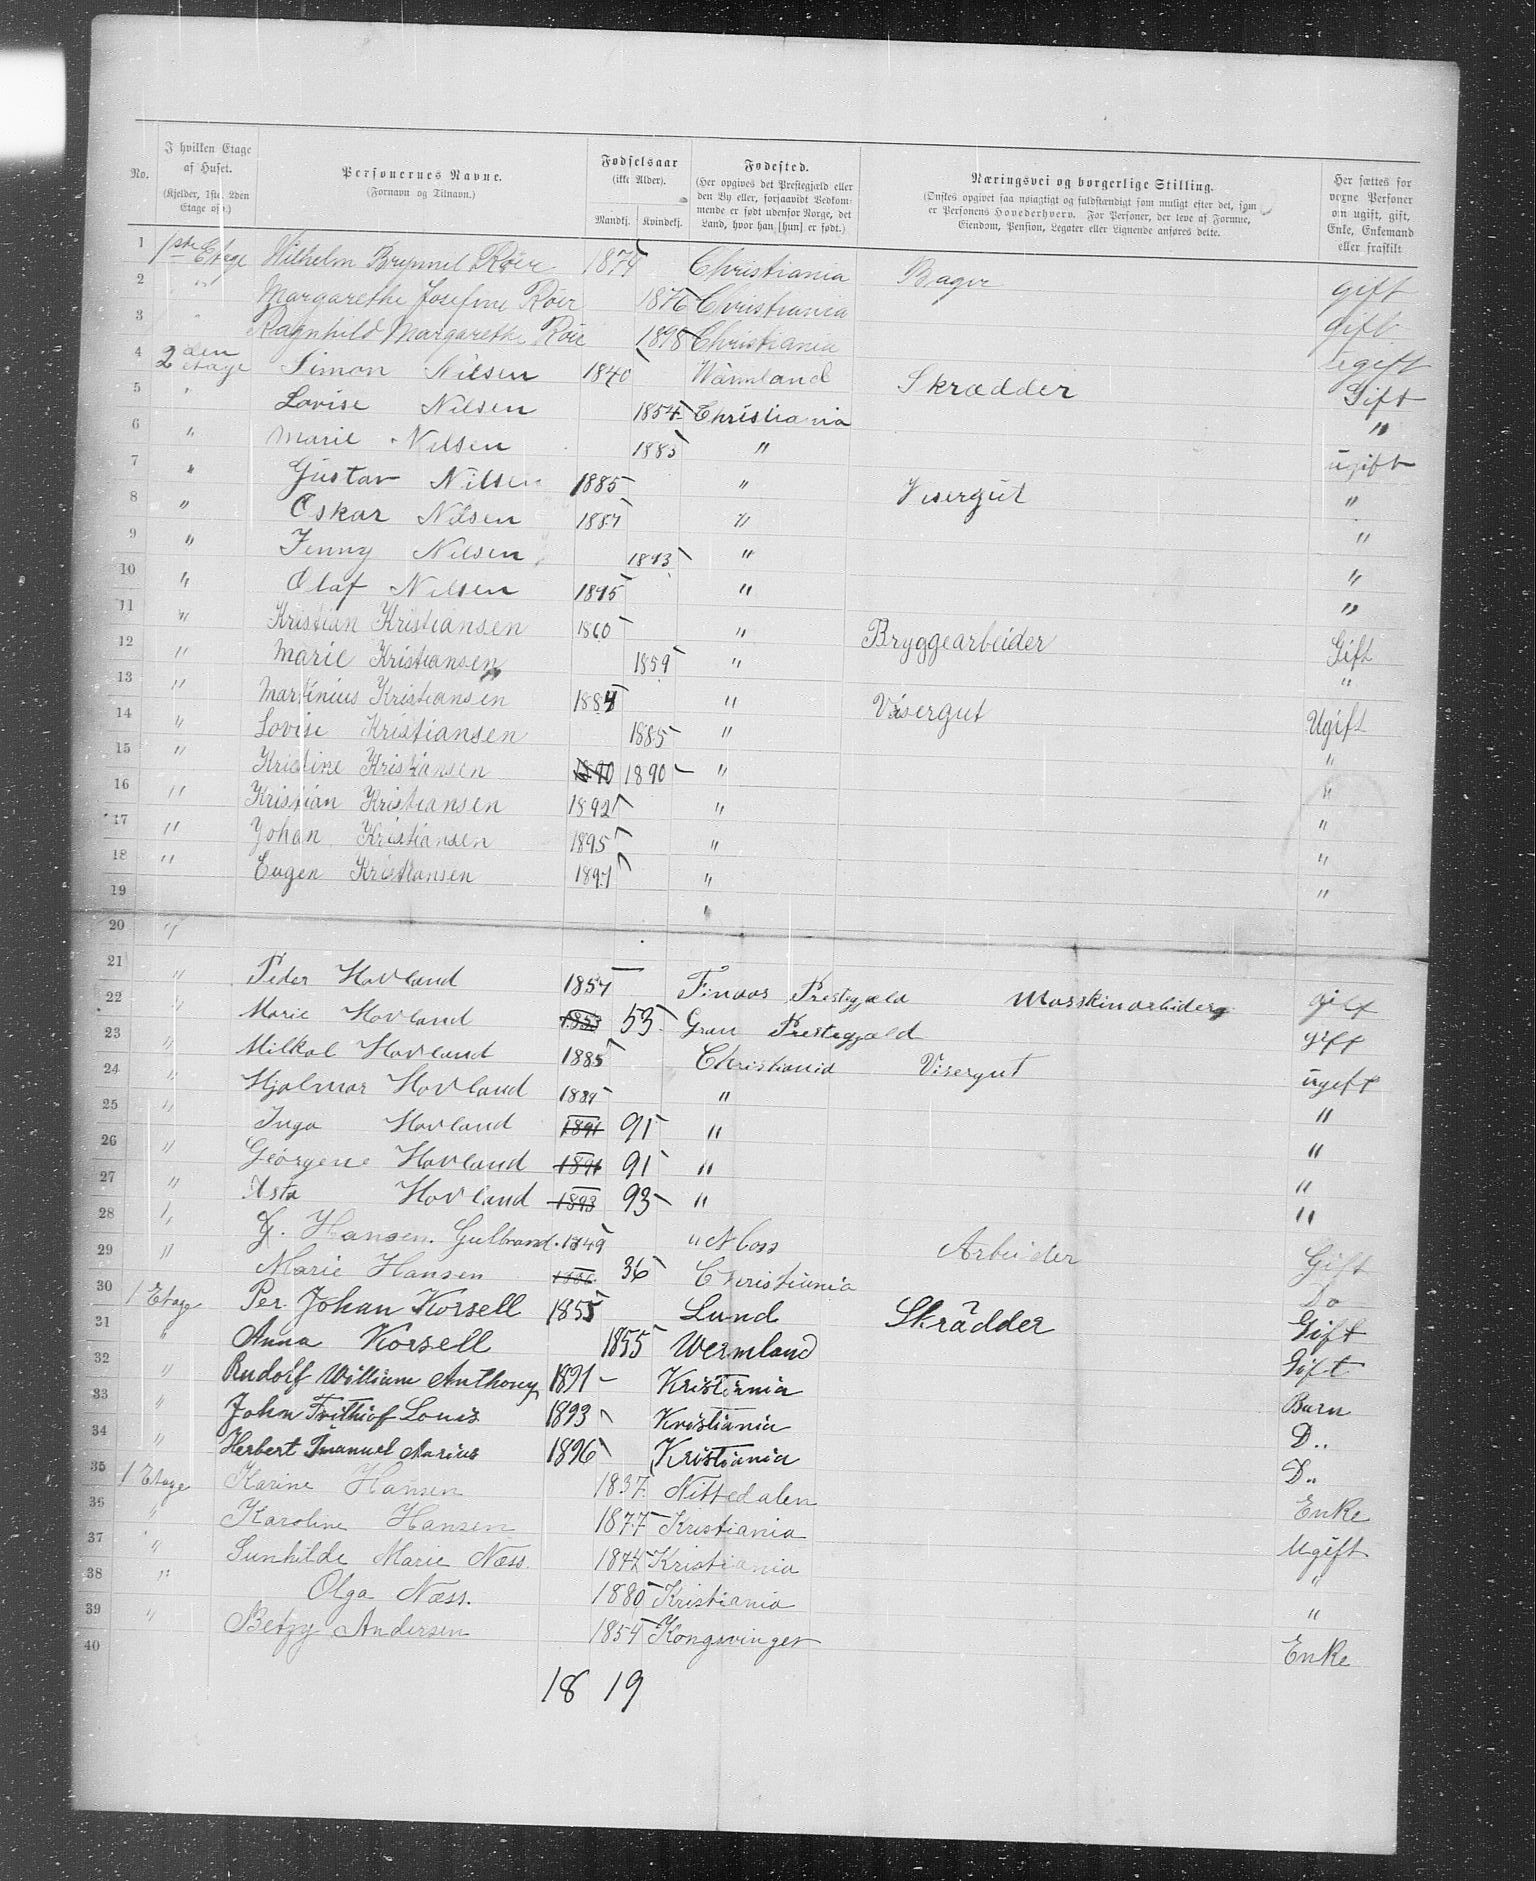 No. | I hvilken Etage af Huset. (Kjelder, 1ste, 2den Etage osv.) | Personernes Navne. (Fornavn og Tilnavn.) | Fødselsaar (ikke Alder). Mandkj. Kvindekj. | Fødested. (Her opgives det Prestegjæld eller den By eller, forsaavidt Vedkommende er født udenfor Norge, det Land, hvor han [hun] er født.) | Næringsvei og borgerlige Stilling. (Ønskes opgivet saa nøiagtigt og fuldstændigt som muligt efter det, som er Personens Hovederhverv. For Personer, der leve af Formue, Eiendom, Pension, Legater eller Lignende anføres dette. | Her sættes for voxne Personer om ugift, gift, Enke, Enkemand eller fraskilt
1 1ste Etage Wilhelm Røer 1874 Christiania Bager gift
2 " Margarethe Josefine Røer 1876 Christiania gift
3 " Ragnhild Margarethe Røer 1898 Christiania ugift
4 2den etage Simon Nilsen 1840 Wärmland Skrædder Gift
5 " Lovise Nilsen 1854 Christiania "
6 " Marie Nilsen 1883 " ugift
7 " Gustav Nilsen 1885 " Visergut "
8 " Oskar Nilsen 1887 " "
9 " Jenny Nilsen 1893 " "
10 " Olaf Nilsen 1895 " "
11 " Kristian Kristiansen 1860 " Bryggearbeider Gift
12 " Marie Kristiansen 1859 " "
13 " Martinius Kristiansen 1884 " Visergut Ugift
14 " Lovise Kristiansen 1885 " "
15 " Kristine Kristiansen 1890 1890 " "
16 " Kristian Kristiansen 1892 " "
17 " Johan Kristiansen 1895 " "
18 " Eugen Kristiansen 1897 " "
19 "
20 "
21 " Peder Hovland 1857 Finaas Prestegjæld Masskinarbider gift
22 " Marie Hovland 1853 53 Gran Prestegjæld gift
23 " Milkal Hovland 1885 Christiania Visergut ugift
24 " Hjalmar Hovland 1889 " "
25 " Inga Hovland 1891 91 " "
26 " Georgene Hovland 1891 91 " "
27 " Asta Hovland 1893 93 " "
28 " G. Hansen. Gulbrand. 1849 " Moss Arbeider Gift
29 " Marie Hansen 1836 36 Christiania Do
30 1 Etage Per Johan Korsell 1855 Lund Skrädder Gift
31 " Anna Korsell 1855 Wermland Gift
32 " Rudolf William Anthony 1891 Kristiania Barn
33 " John Frithiof Louis 1893 Kristiania D..
34 " Herbert Imanuel Marius 1896 Kristiania D..
35 1 Etage Karine Hansen 1837 Nittedalen Enke
36 " Karoline Hansen 1877 Kristiania Ugift
37 " Gunhilde Marie Næss. Kristiania "
38 " Olga Næss. 1880 Kristiania "
39 " Betzy Andersen 1854 Kongsvinger Enke
40
18 19